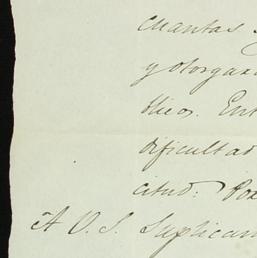 cuantas
y otorga
blicos. Ent
dificultad
citud. Por
A V. S. Suplican